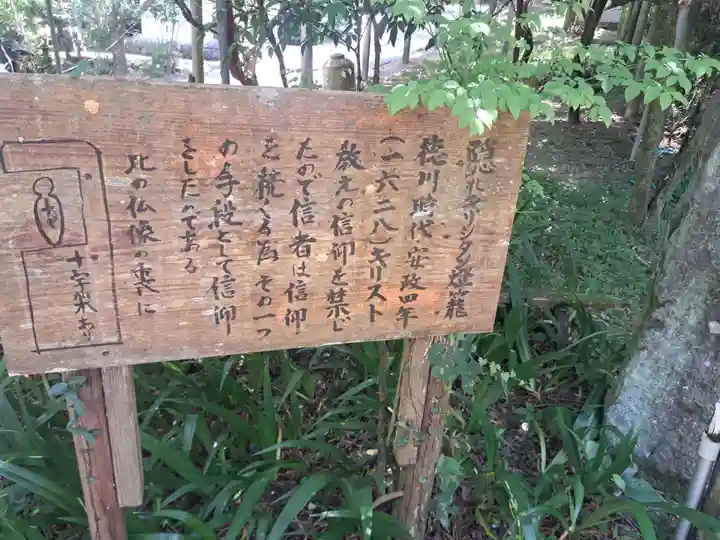 隠れキリシタン燈籠
徳川時代安政四年
(一六二八)キリスト
教えの信仰を禁じ
たので信者は信仰
を続ける為その一つ
の手段として信仰
をしたのである
此の仏像の裏に
十字架あ